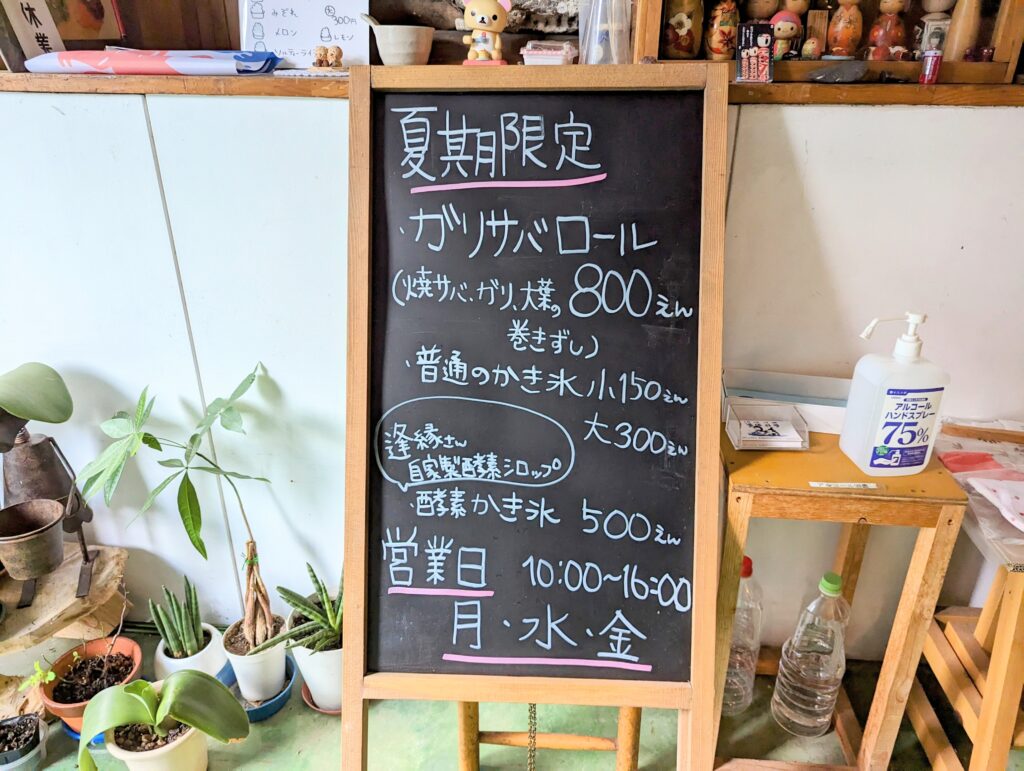 休業
みぞれ
メロン
ソルティーライ
大300円
レモン
夏期限定
・ガリサバロール
(焼サバ、ガリ、大葉の 800えん
巻きずし)
・普通のかき氷 小150えん
大300えん
逢縁さん
自家製酵素シロップ
・酵素かき氷 500えん
営業日 10:00~16:00
月・水・金
アルコール
ハンドスプレー
75%